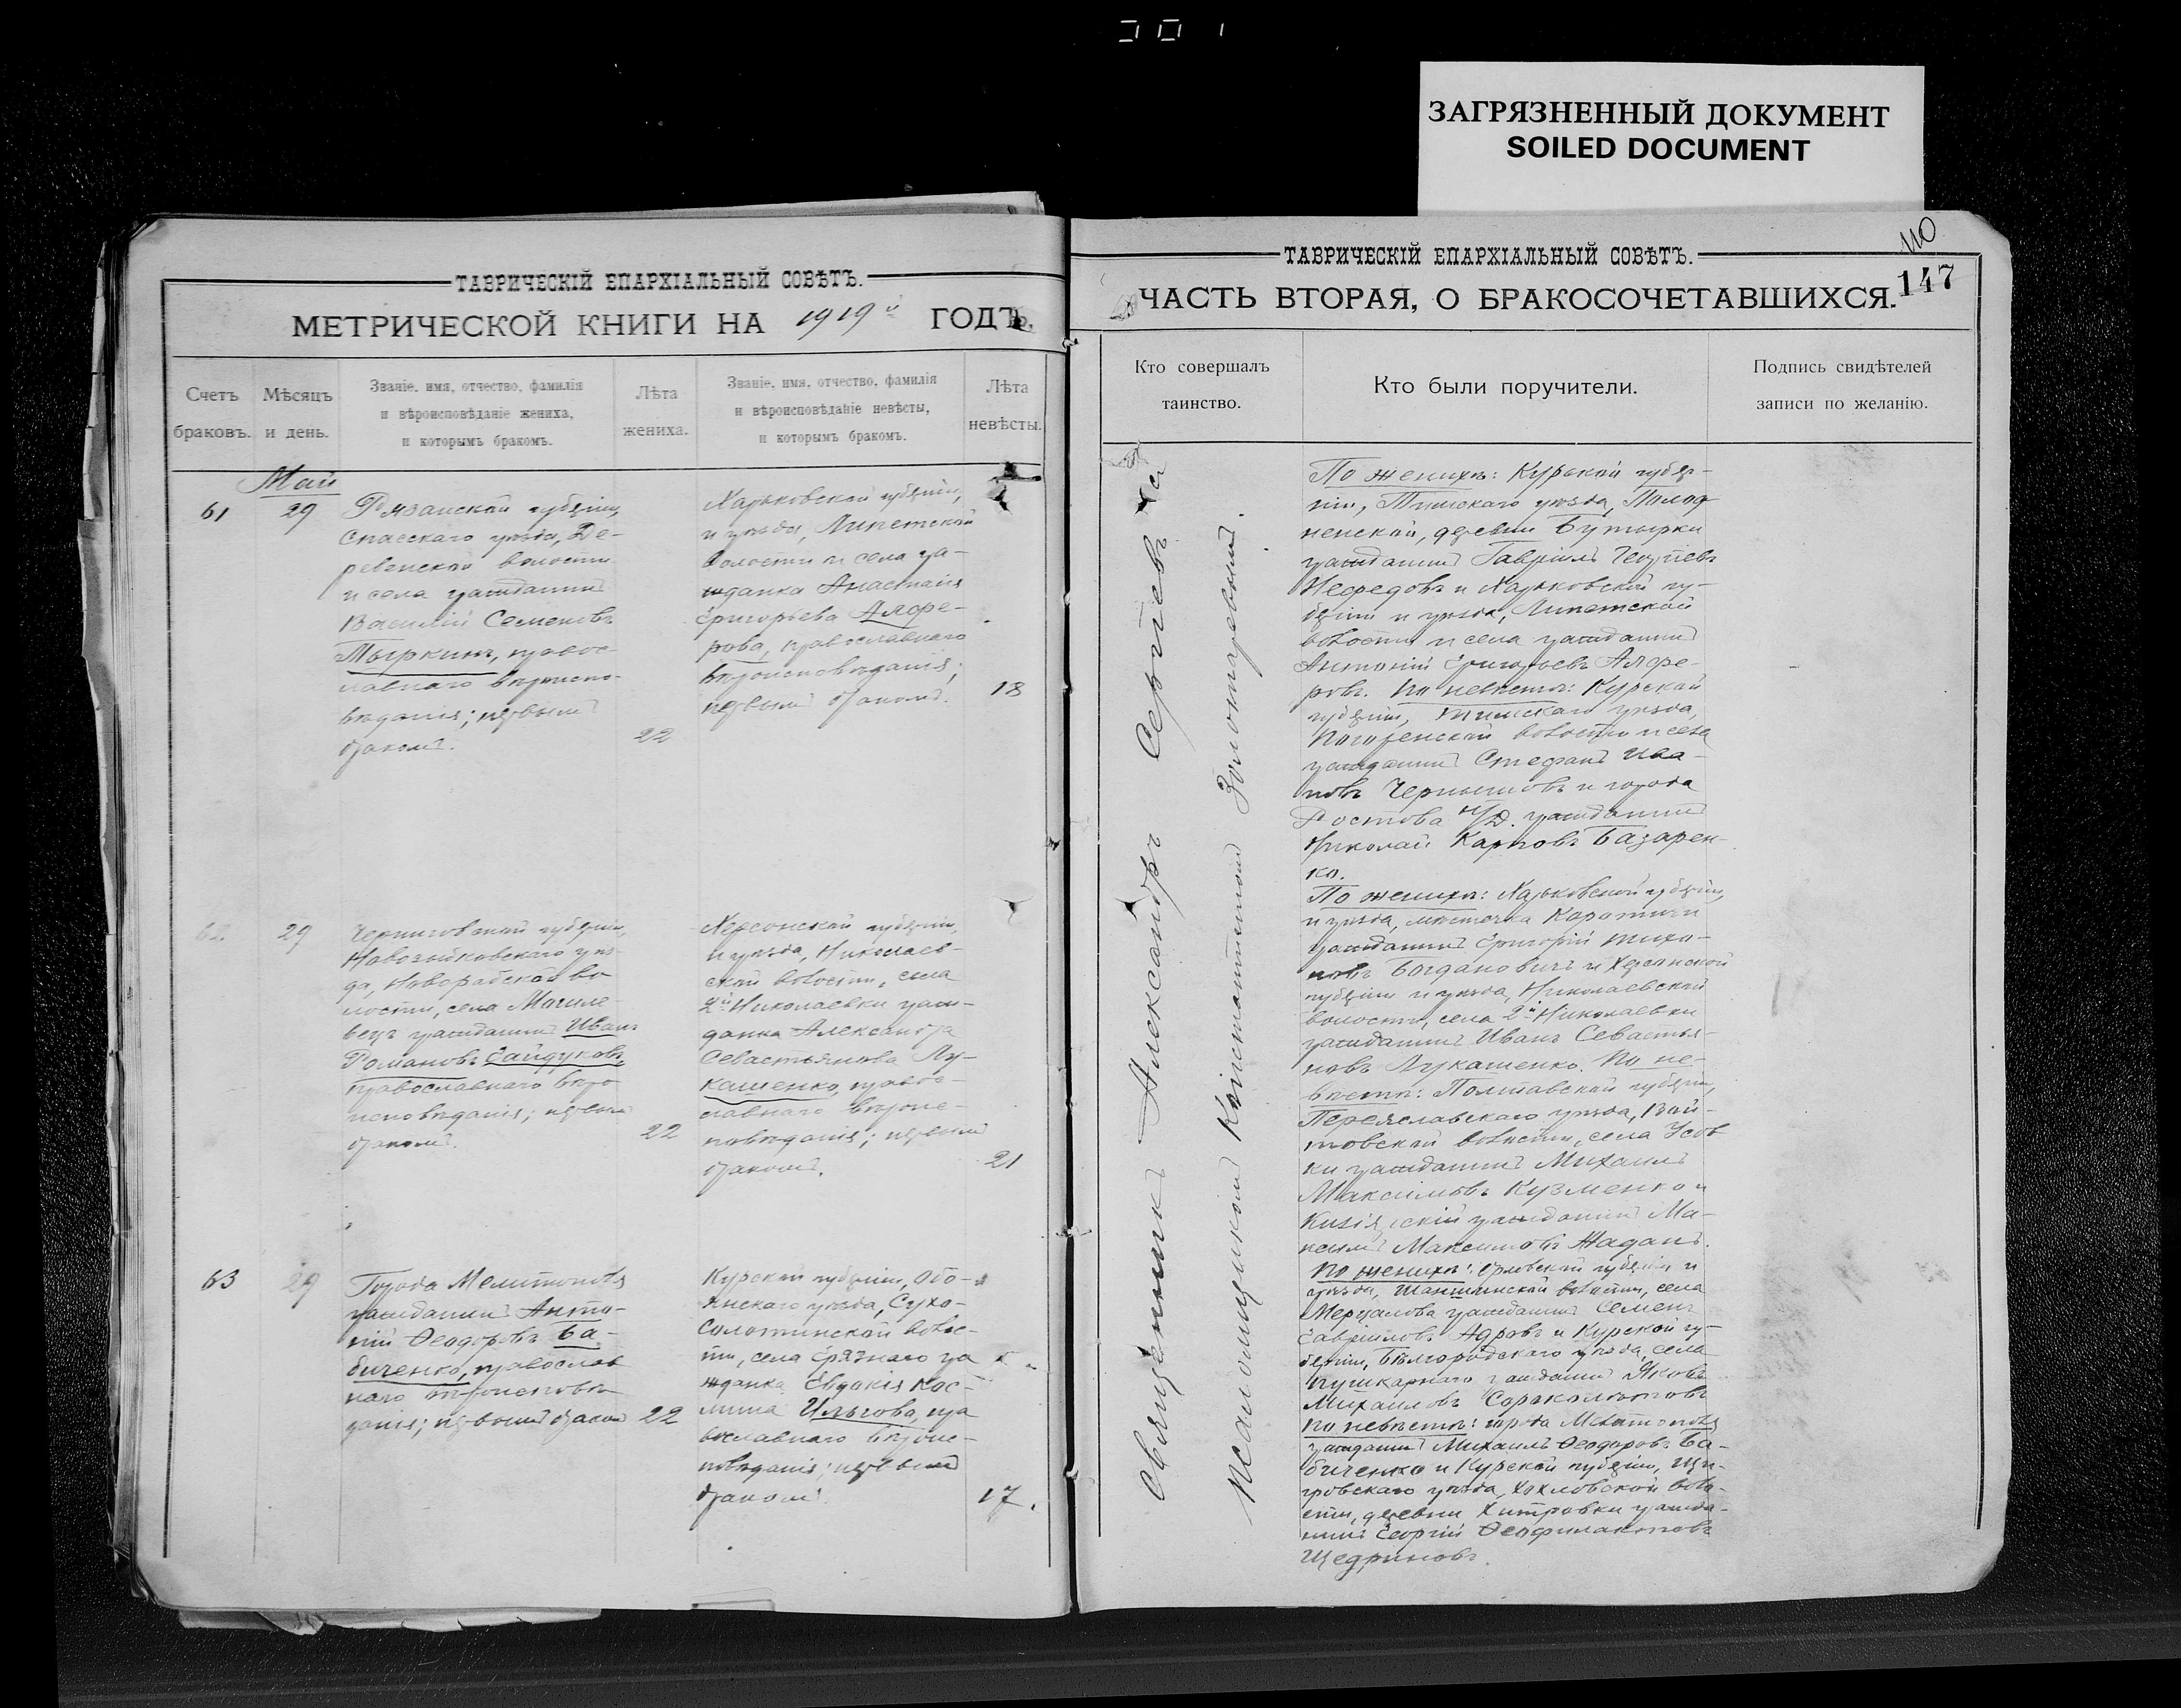 ЗАГРЯЗНЕННЫЙ ДОКУМЕНТ
SOILED DOCUMENT
ТАВРИЧЕСКІЙ ЕПАРХІАЛЬНЫЙ СОВѢТЪ.
МЕТРИЧЕСКОЙ КНИГИ НА 1919й ГОДЪ.
Счетъ браковъ.
Мѣсяцъ и день.
Званіе, имя, отчество, фамилія
и вѣроисповѣданіе жениха,
и которымъ бракомъ.
Лѣта жениха.
Званіе, имя, отчество, фамилія
и вѣроисповѣданіе невѣсты,
и которымъ бракомъ.
Лѣта невѣсты.
Май
61
29
Рязанской губерніи,
Спасскаго уѣзда, Де-
ревенской волости
и села гражданинъ
Василій Семеновъ
Мыркинъ, правос-
лавнаго вѣроиспо-
вѣданія; первымъ
бракомъ.
22
Харьковской губерніи,
и уѣзда, Липетской
волости и села гра-
жданка Анастасія
Григорьева Алфе-
рова, православнаго
вѣроисповѣданія;
первымъ бракомъ.
18
62.
29
Черниговской губерніи,
Новозыбковскаго уѣз-
да, Новоропской во
лости, села Могиле-
вецъ гражданинъ Иванъ
Романовъ Гайдуковъ,
православнаго вѣро
исповѣданія; первымъ
бракомъ.
22
Херсонской губерніи,
и уѣзда, Николаев-
ской волости, села
2й Николаевки граж-
данка Александра
Севастьянова Лу-
кашенко, правос-
лавнаго вѣроис-
повѣданія; первымъ
бракомъ.
21
63
29
Города Мелитополя
гражданинъ Анто-
ній Ѳеодоровъ Ба-
биченко, православ
наго вѣроисповѣ
данія; первымъ бракомъ
22
Курской губерніи, Обо-
янскаго уѣзда, Сухо-
Солотинской волос-
ти, села Грязнаго гра
жданка Евдокія Кос-
мина Ильгова, пра
вославнаго вѣроис-
повѣданія; первымъ
бракомъ.
17.
110
147
ТАВРИЧЕСКІЙ ЕПАРХІАЛЬНЫЙ СОВѢТЪ.
ЧАСТЬ ВТОРАЯ, О БРАКОСОЧЕТАВШИХСЯ.
Кто совершалъ таинство.
Кто были поручители.
Подпись свидѣтелей
записи по желанію.
Священникъ Александръ Сергѣевъ съ
псаломщикомъ Константиномъ Золотаревымъ.
По женихѣ: Курской губер-
ніи, Тимскаго уѣзда,
ненской, деревни Бутырки
гражданинъ Гавріилъ Георгіевъ
Нефедовъ и Харьковской гу-
берніи и уѣзда, Липетской
волости и села гражданинъ
Антоній Григорьевъ Алфе-
ровъ. По невѣстѣ: Курской
губерніи, Тимскаго уѣзда,
волости и села
гражданинъ Стефанъ Ива-
новъ Чернышовъ и города
Ростова н/Д. гражданинъ
Николай Карповъ Базарен-
ко.
По женихѣ: Харьковской губерніи,
и уѣзда, мѣстечка Коротичи
гражданинъ Григорій Тихо-
новъ Богдановичъ и Херсонской
губерніи и уѣзда, Николаевской
волости, села 2й Николаевки
гражданинъ Иванъ Севастья-
новъ Лукашенко. По не-
вѣстѣ: Полтавской губерніи,
Переяславскаго уѣзда, Вой-
товской волости, села Усов
ки гражданинъ Михаилъ
Максимовъ Кузменко и
гражданинъ Ма-
ксимъ Максимовъ Жаданъ.
По женихѣ: Орловской губерніи и
уѣзда, волости, села
гражданинъ Семенъ
Гавріиловъ Адровъ и Курской гу-
берніи, Бѣлгородскаго уѣзда, села
Пушкарнаго гражданинъ Яковъ
Михаиловъ Сороколѣтовъ
По невѣстѣ: города Мелитополя
гражданинъ Михаилъ Ѳеодоровъ Ба-
биченко и Курской губерніи, Щи-
гровскаго уѣзда, Хохловской воло-
сти, деревни Хитровки гражда-
нинъ Георгій Ѳеофилактовъ
Щедриновъ.